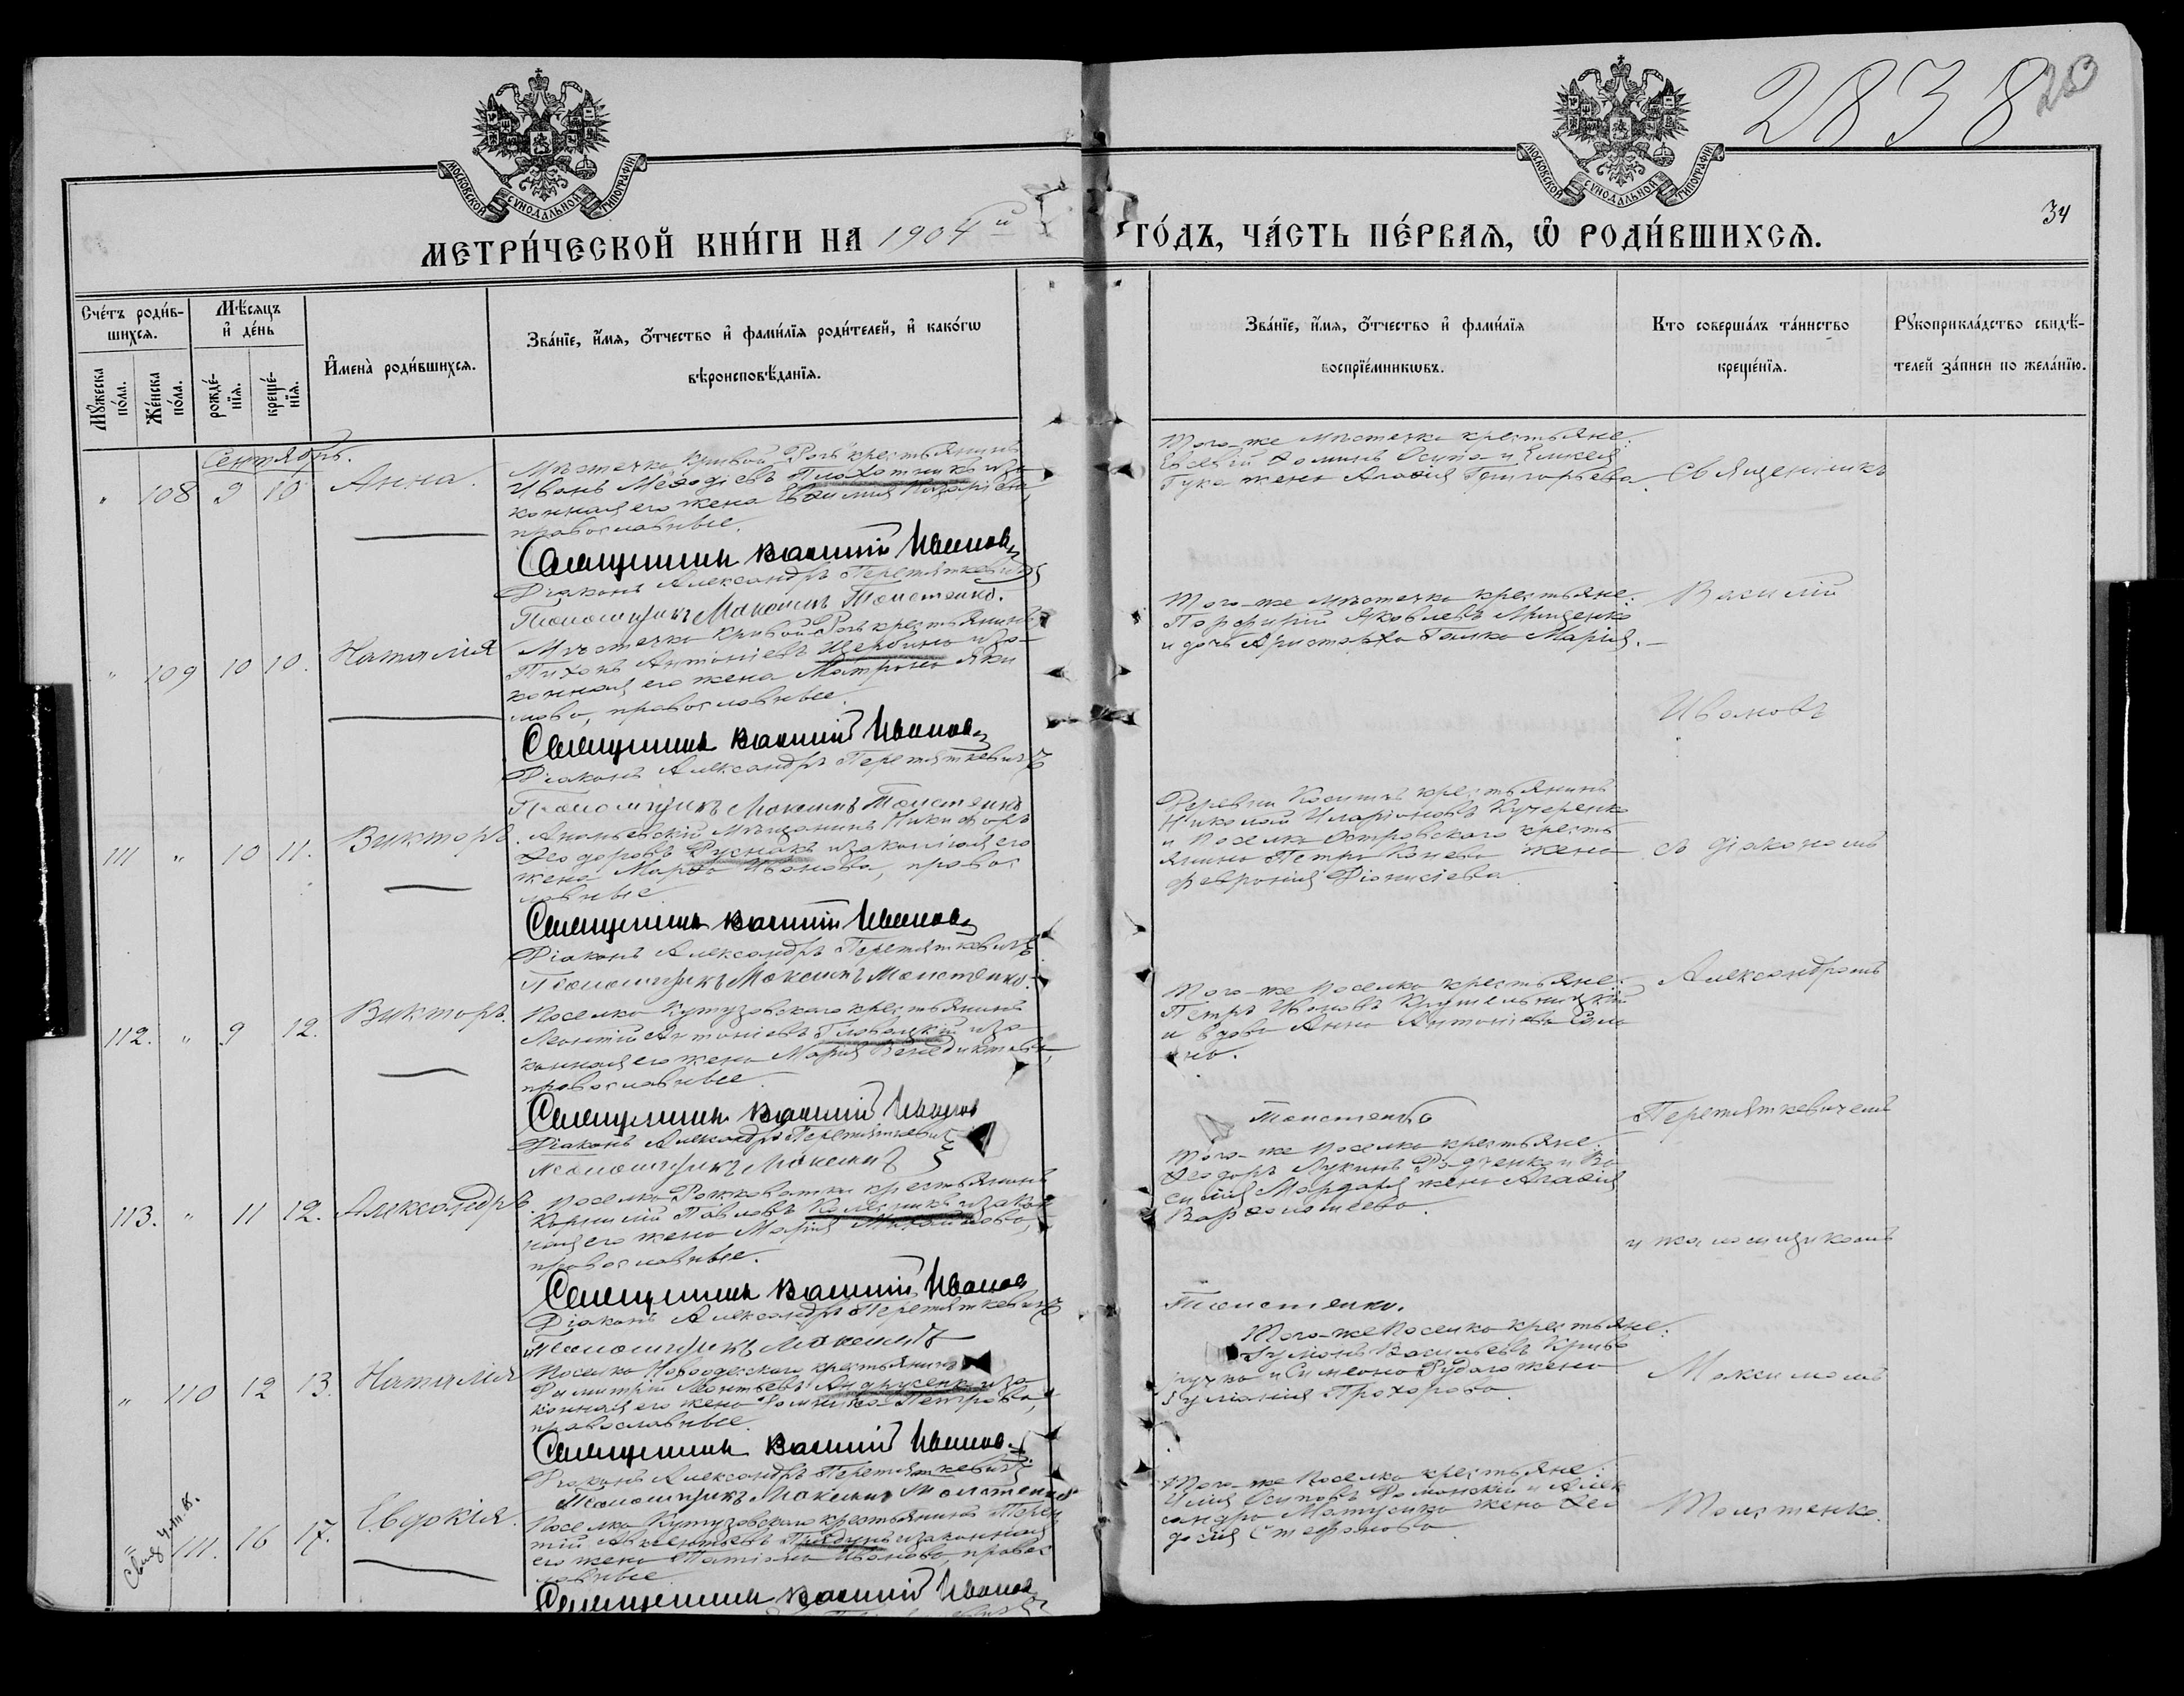 2838
20
34
МОСКОВСКОЙ СѴНОДАЛЬНОЙ ТИПОГРАФІИ
МОСКОВСКОЙ СѴНОДАЛЬНОЙ ТИПОГРАФІИ
МЕТРИ́ЧЕСКОЙ КНИ́ГИ НА 1904й ГО́ДЪ, ЧА́СТЬ ПЕ́РВАѦ, Ѡ РОДИ́ВШИХСѦ.
Сче́тъ роди́в-
шихсѧ.
Мꙋ́жеска по́ла.
Же́нска по́ла.
Мѣ́сѧцъ
и҆ де́нь
рожде́-
нїѧ.
креще́-
нїѧ.
И҆мена̀ роди́вшихсѧ.
Зва́нїе, и҆́мѧ, ѻ҆́тчество и҆ фами́лїѧ роди́телей, и҆ како́гѡ
вѣроисповѣ́данїѧ.
Зва́нїе, и҆́мѧ, ѻ҆́тчество и҆ фами́лїѧ
воспрїе́мникѡвъ.
Кто соверша́лъ та́инство
креще́нїѧ.
Рꙋкоприкла́дство свидѣ́-
телей за́писи по жела́нїю.
Сентябрь.
" 108 9 10 Анна.
Мѣстечка Кривой Рогъ крестьянинъ
Иванъ Меѳодіевъ Плохотникъ и за-
конная его жена Евѳимія Назаріева
православные.
Священникъ Василій Ивановъ
Діаконъ Александръ Перетяткевичъ
Псаломщикъ Максимъ Толстенко.
Того-же мѣстечка крестьяне:
Евсевій Ѳоминъ Осипа и Елисея
Гука жена Агаѳія Григорьева.
Священникъ
" 109 10 10. Наталія
Мѣстечка Кривой Рогъ крестьянинъ
Тихонъ Антоніевъ Щербина и за-
конная его жена Матрона Яки
мова, православные.
Священникъ Василій Ивановъ
Діаконъ Александръ Перетяткевичъ
Псаломщикъ Максимъ Толстенко
Того-же мѣстечка крестьяне:
Порфирій Яковлевъ Мищенко
и дочь Аристарха Галка Марія.
Василій
Ивановъ
111 " 10 11. Викторъ.
Ананьевскій мѣщанинъ Никифоръ
Ѳеодоровъ Руснакъ и законная его
жена Марѳа Иванова, правос
лавные
Священникъ Василій Ивановъ
Діаконъ Александръ Перетяткевичъ
Псаломщикъ Максимъ Толстенко.
Деревни крестьянинъ
Николай Иларіоновъ Кучеренко
и поселка Островского кресть
янина Петра Конева жена
Февронія Діонисіева
съ діакономъ
112. " 9 12. Викторъ.
Поселка Кутузовского крестьянинъ
Леонтій Антоніевъ и за-
конная его жена Марія Венедиктова,
православные
Священникъ Василій Ивановъ
Діаконъ Александръ Перетяткевичъ
Псаломщикъ Максимъ
Толстенко
Того-же поселка крестьяне:
Петръ Ивановъ Крушельницкій
и вдова Анна Антоніева
Александромъ
Перетяткевичемъ
113. " 11 12. Александръ.
Поселка Рожковатки крестьянинъ
Корнилій Павловъ Колѣсникъ и закон
ная его жена Марія Михайлова,
православные.
Священникъ Василій Ивановъ
Діаконъ Александръ Перетяткевичъ
Псаломщикъ Максимъ
Толстенко.
Того-же поселка крестьяне:
Ѳеодоръ Лукинъ Радченко и Ва
силія Мордаря жена Агаѳія
Варѳоломеева.
и псаломщикомъ
" 110 12 13. Наталія
Поселка Новоодесского крестьянинъ
Димитрій Леонтьевъ Андрусенко и за
конная его жена Домника Петрова,
православные
Священникъ Василій Ивановъ
Діаконъ Александръ Перетяткевичъ
Псаломщикъ Максимъ Толстенко
Того-же поселка крестьяне:
Василіевъ
и Симеона Рудаго жена
Іуліанія Прохорова.
Максимомъ
" 111. 16 17. Евдокія.
Поселка Кутузовского крестьянинъ Терен
тій Авксентьевъ и законная
его жена Татіана Иванова, правос
лавные
Священникъ Василій Ивановъ
Того-же поселка крестьяне:
Илія Осиповъ и Алек
сандра Матусяка жена Ѳео
досія Стефанова
Толстенко.